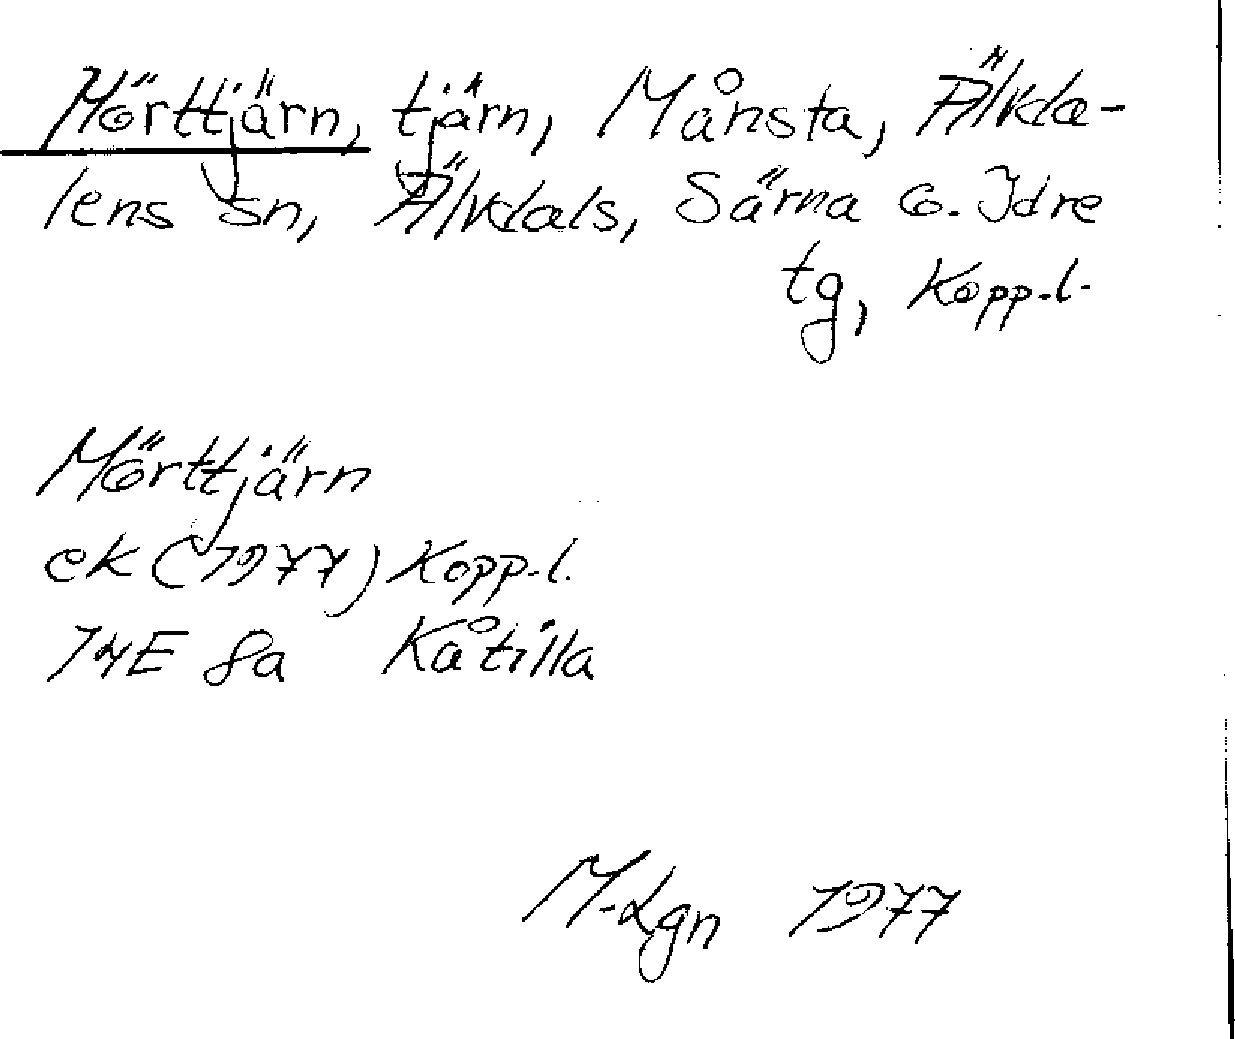 Mörttjärn, tjärn, Månsta, Älvda-
lens sn, Älvdals, Särna o. Idre
tg, Kopp.l.
Mörttjärn
ek (1977) Kopp.l.
14E 8a Kåtilla
M.Lgn 1977